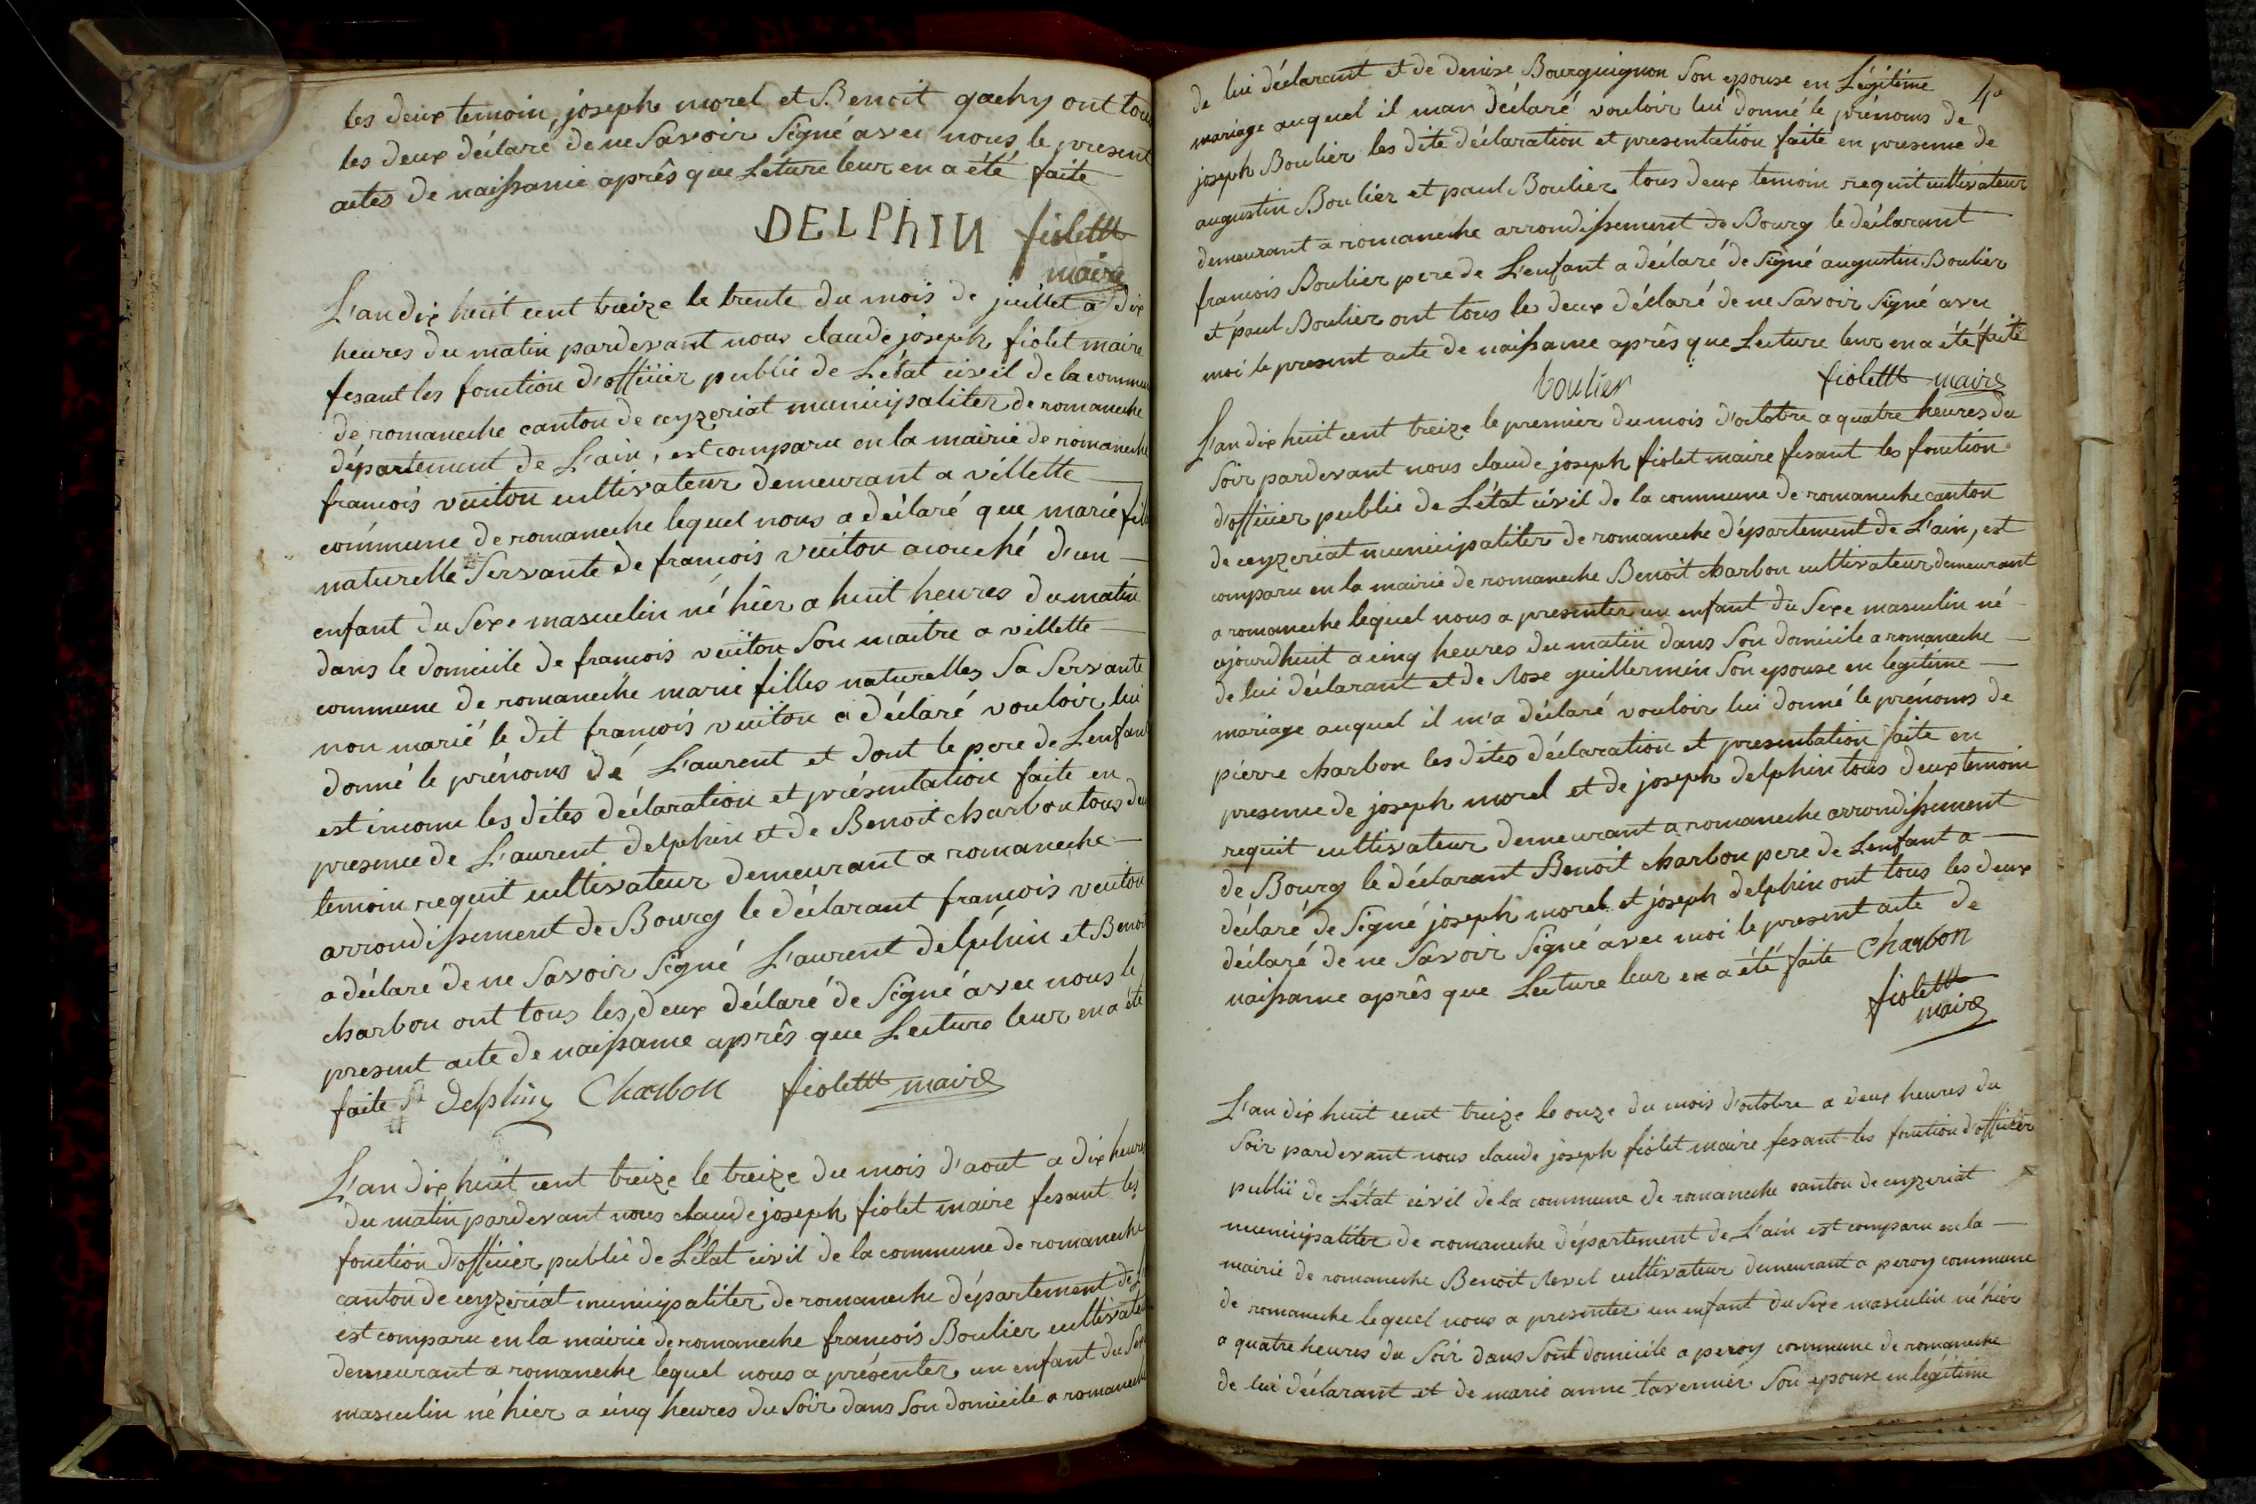 les deux temoin joseph morel et Benoit gachy ont tous
les deux déclaré de ne Savoir Signé avec nous le present
actes de naissance après que Léture leur en a été faite
DELPhIN fiolettt
maire
L'an dix huit cent treize le trente du mois de juillet a dix
heures du matin pardevant nous claude joseph fiolet maire
fesant les fonction d'officier public de L'état civil de la commune
de romaneche canton de ceyzeriat municipaliter de romaneche
département de L'ain, est comparu en la mairie de romaneche
francois vuiton cultivateur demeurant a villette
commune de romaneche lequel nous a déclaré que marie fille
naturelle Servante de francois vuiton acouché d'un
enfant du Sexe masculin né hier a huit heures du matin
dans le domicile de francois vuiton Son maitre a villette
commune de romaneche marie filles naturelles Sa Servante
non marié le dit francois vuiton a déclaré vouloir lui
donné le prénoms dé L'aurent et dont le pere de Lenfant
est inconu les dites déclaration et présentation faite en
presence de L'aurent delphin et de Benoit charbon tous deux
temoin requit cultivateur demeurant a romaneche
arrondissement de Bourg le déclarant francois vuiton
a déclaré de ne Savoir Signé L'aurent delphin et Benoit
charbon ont tous les deux déclaré de Signé avec nous le
present acte de naissance après que Lecture leur en a été
faite delphin Charbon fiolettt maire
L'an dix huit cent treize le treize du mois d'aout a dix heures
du matin pardevant nous claude joseph fiolet maire fesant les
fonction d'officier public de L'état civil de la commune de romaneche
canton de ceyzeriat municipaliter de romaneche département de
est comparu en la mairie de romaneche francois Boulier cultivateur
demeurant a romaneche lequel nous a présenter un enfant du Sexe
masculin né hier a cinq heures du Soir dans Son domicile a romaneche
4e
de lui déclarant et de denise Bourguignon Son epouse en Légitime
mariage auquel il man déclaré vouloir lui donné le prénoms de
joseph Boulier les dite déclaration et presentation faite en presence de
augustin Boulier et paul Boulier tous deux temoin requit cultivateur
demeurant a romaneche arrondissement de Bourg le déclarant
francois Boulier pere de L'enfant a déclaré de Signé augustin Boulier
et paul Boulier ont tous le deux déclaré de ne Savoir Signé avec
moi le present acte de naissance après que Lecture leur en a été faite
boulier fiolettt maire
L'an dix huit cent treize le premier du mois d'octobre a quatre heures du
Soir pardevant nous claude joseph fiolet maire fesant les fonction
d'officier public de L'état civil de la commune de romaneche canton
de ceyzeriat municipaliter de romaneche département de L'ain, est
comparu en la mairie de romaneche Benoit charbon cultivateur demeurant
a romaneche lequel nous a presenter un enfant du Sexe masculin né
ajourdhuit a cinq heures du matin dans Son domicile a romaneche
de lui déclarant et de Rose guillermin Son epouse en legitime
mariage auquel il m'a déclaré vouloir lui donné le prénoms de
pierre charbon les dites déclaration et presentation faite en
presence de joseph morel et de joseph delphin tous deux temoin
requit cultivateur demeurant a romaneche arrondissement
de Bourg le déclarant Benoit charbon pere de Lenfant a
déclaré de Signé joseph morel et joseph delphin ont tous les deux
déclaré de ne Savoir Signé avec moi le present acte de
naissance après que Lecture leur en a été faite Charbon
fiolettt
maire
L'an dix huit cent treize le onze du mois d'octobre a deux heures du
Soir pardevant nous claude joseph fiolet maire fesant les fonction d'officier
public de L'état civil de la commune de romaneche canton de ceyzeriat
municipaliter de romaneche département de L'ain est comparu en la
mairie de romaneche Benoit Revel cultivateur demeurant a peroy commune
de romaneche lequel nous a presenter un enfant du Sexe masculin né hier
a quatre heures du Soir dans Sont domicile a peroy commune de romaneche
de lui déclarant et de marie anne tavernier Son epouse en légitime